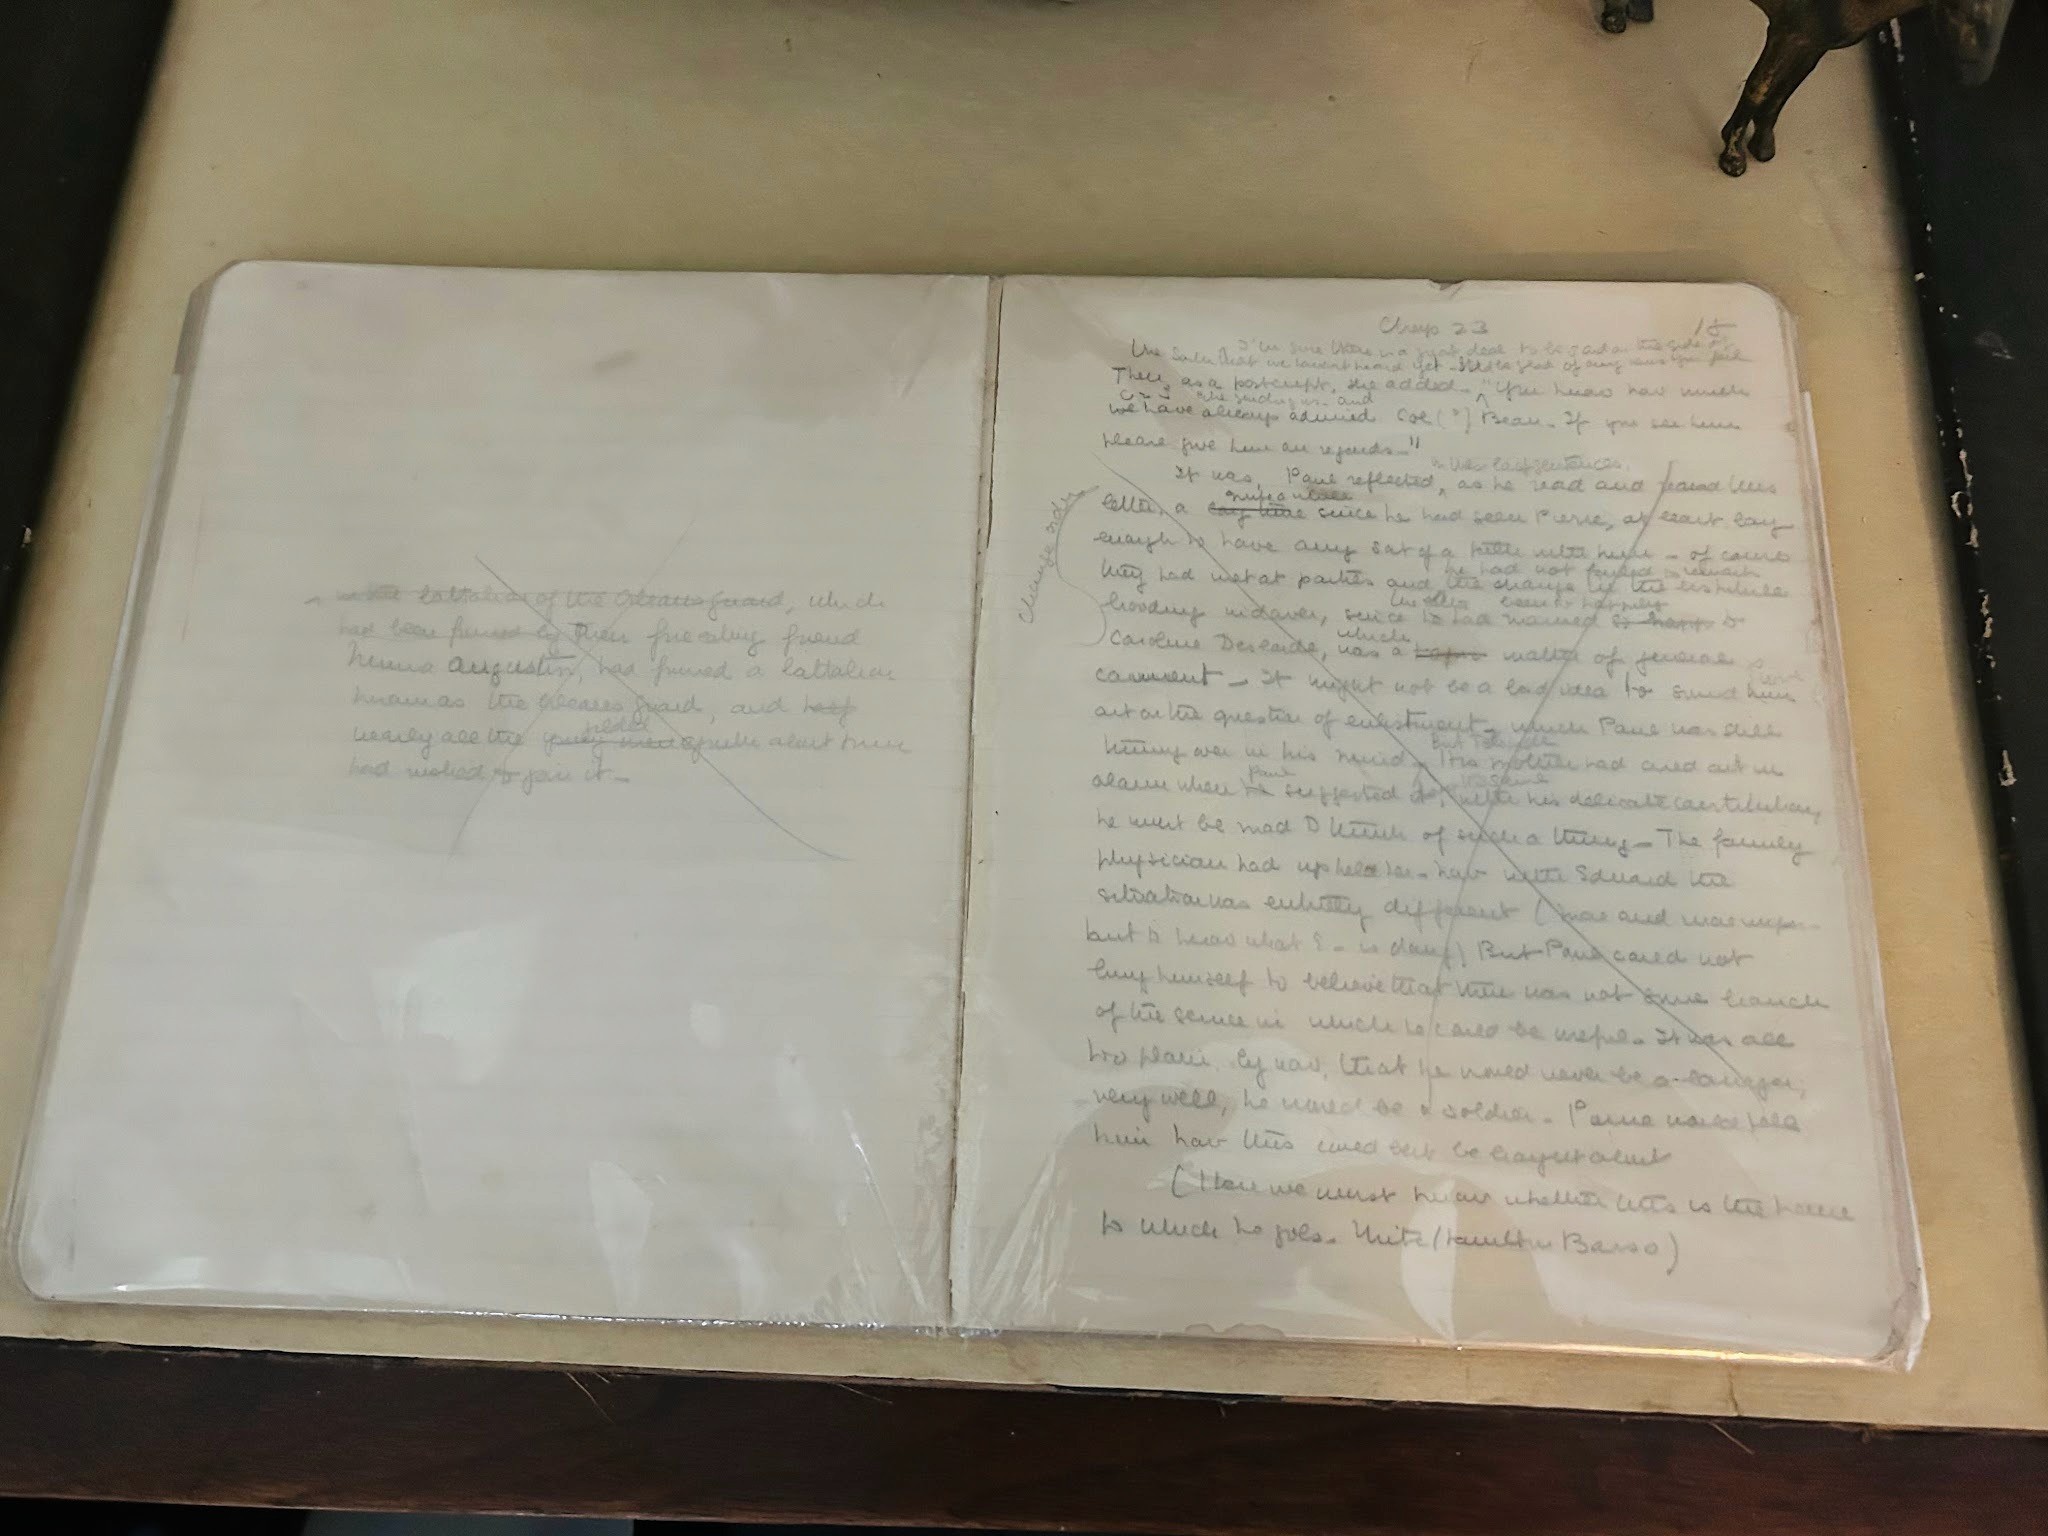 battalion of the Orleans guard, which
had been formed by their friend
Numa Augustin, had formed a battalion
known as the Orleans guard, and half
nearly all the young men about him
had rushed to join it -
Chap 23
I'm sure there is a great deal to be said on the side of
the South that we haven't heard yet - of any news you
Then, as a postscript, she added - "You know how much
and
we have always admired Col (?) Beau - If you see him
please give him our regards - "
last sentences,
It was, Paul reflected, as he read and reread this
quite a while
letter, a long time since he had seen Pierre, at least long
enough to have any sort of a with him - of course
he had not to
they had met at parties and the change in the
been so happily
brooding since he had married so happily to
Change order
which
Caroline Deslonde, was a matter of general
comment - It might not be a bad idea to sound him
out on the question of enlistment - which Paul was still
But
turning over in his mind - His mother had cried out in
Paul
alarm when he suggested it, with his delicate constitution,
he must be mad to think of such a thing - The family
physician had upheld her - how with Edward the
situation was entirely different (more and more impor-
tant to know what E - is doing) But Paul could not
bring himself to believe that there was not some branch
of the service in which he could be useful - It was all
too plain, by now, that he would never be a lawyer,
very well, he would be a soldier - Pierre would tell
him how this could best be brought about
(Here we must know whether this is the house
to which he goes. Write Hamilton Basso)